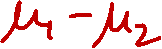 μ₁ - μ₂